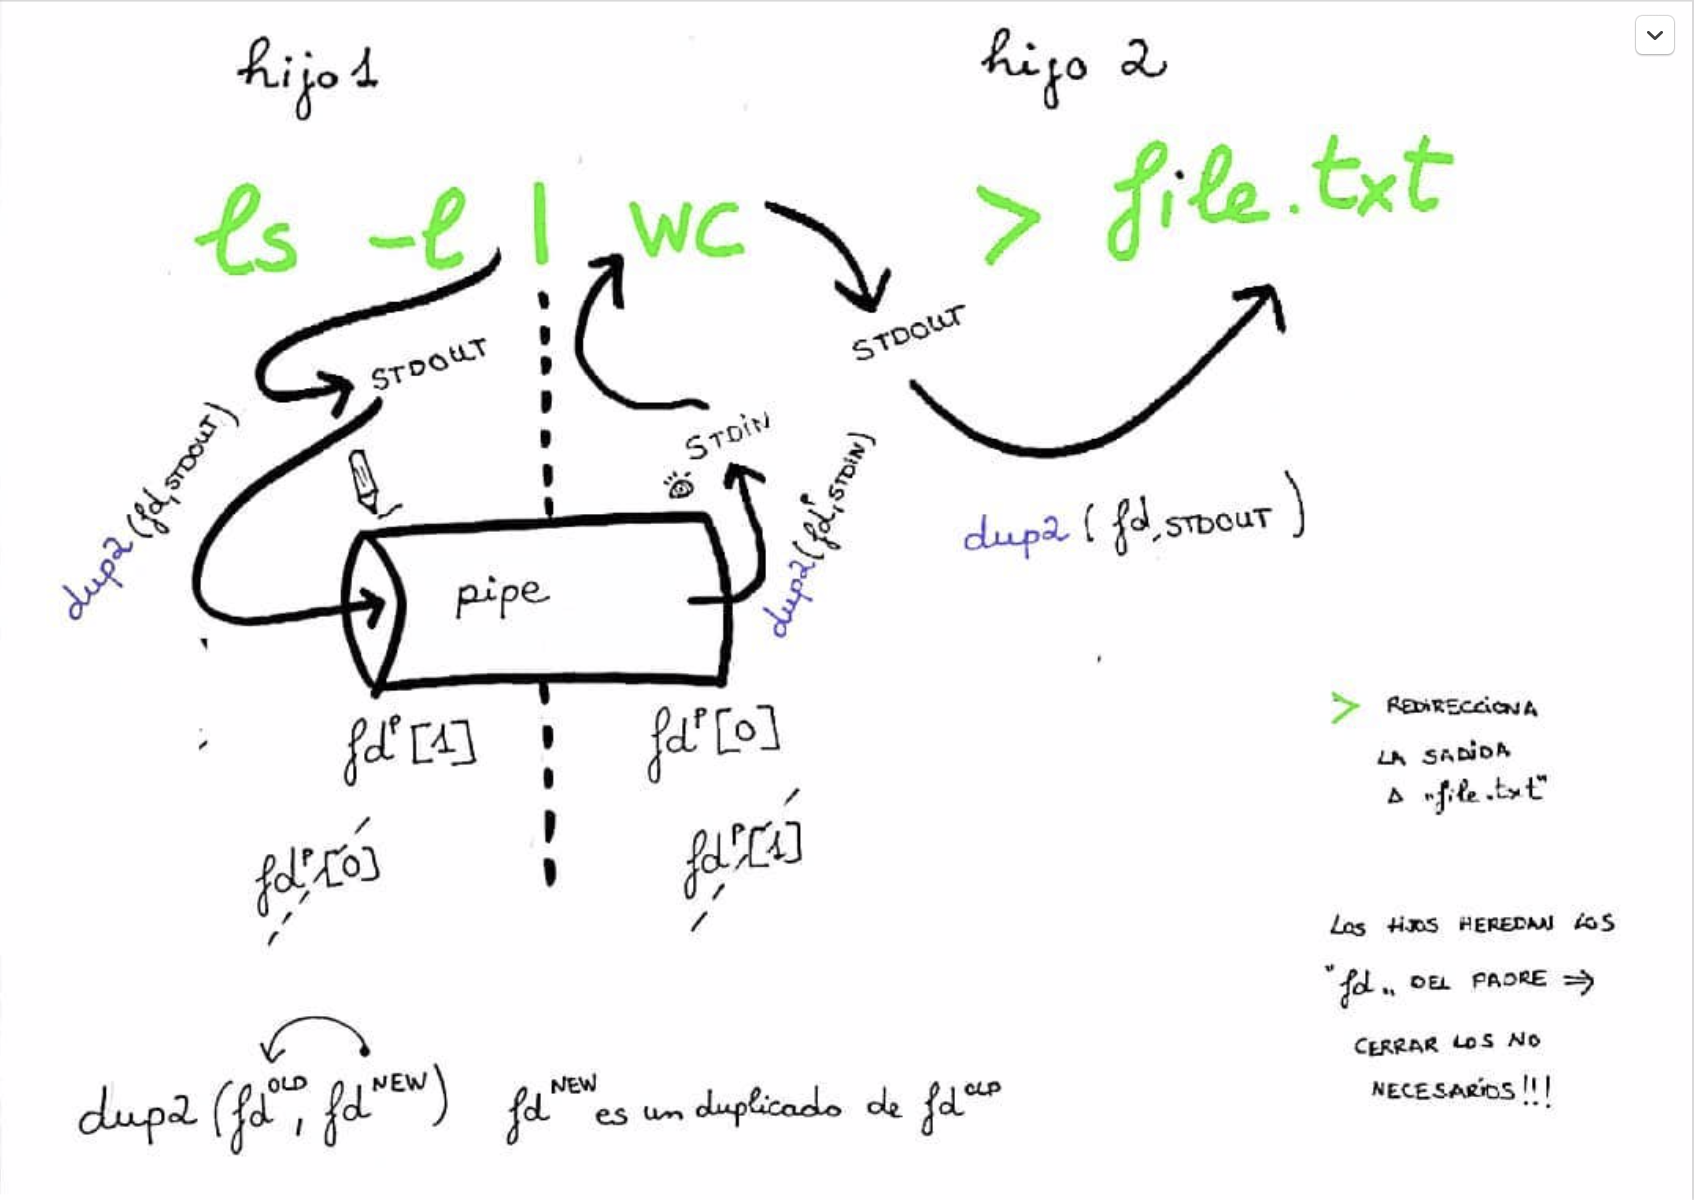 hijo 1
hijo 2
ls -l | wc > file.txt
STDOUT
STDOUT
STDIN
dup2(fd,STDOUT)
dup2(fdᴾ,STDIN)
dup2(fd,STDOUT)
pipe
fdᴾ[1]
fdᴾ[0]
fdᴾ[0]
fdᴾ[1]
> REDIRECCIONA
LA SADIDA
A "file.txt"
LOS HIJOS HEREDAN LOS
"fd" DEL PADRE ⇒
CERRAR LOS NO
NECESARIOS!!!
dup2(fdᴼᴸᴰ, fdᴺᴱᵂ) fdᴺᴱᵂ es un duplicado de fdᴼᴸᴰ